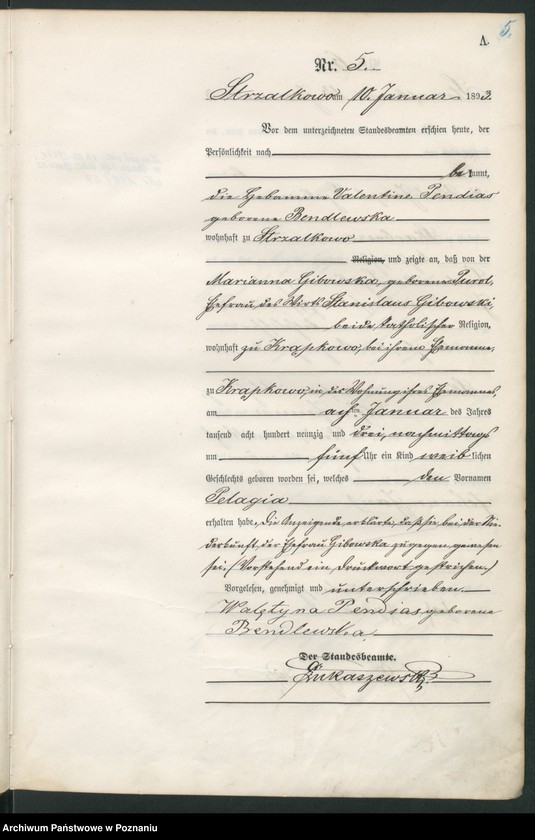 5.
A.
Nr. 5.
Strzalkowo am 10. Januar 1893.
Vor dem unterzeichneten Standesbeamten erschien heute, der
Persönlichkeit nach
bekannt,
die Hebamme Valentine Pendias
geborene Bendlewska
wohnhaft zu Strzalkowo
Religion, und zeigte an, daß von der
Marianna Gibowska, geborene
Ehefrau des Wirths Stanislaus Gibowski,
beide katholischer Religion,
wohnhaft zu Krąpkowo, bei ihrem Ehemanne,
zu Krąpkowo, in der Wohnung ihres Ehemannes,
am achten Januar des Jahres
tausend acht hundert neunzig und drei, nachmittags
um fünf Uhr ein Kind weiblichen
Geschlechts geboren worden sei, welches den Vornamen
Pelagia
erhalten habe. Die Anzeigende erklärte, daß sie bei der Nie-
derkunft der Ehefrau Gibowska zugegen gewesen
sei. (Vorstehend ein Druckwort gestrichen.)
Vorgelesen, genehmigt und unterschrieben.
Walętyna Pendias geborene
Bendlewska
Der Standesbeamte.
Łukaszewski
Archiwum Państwowe w Poznaniu